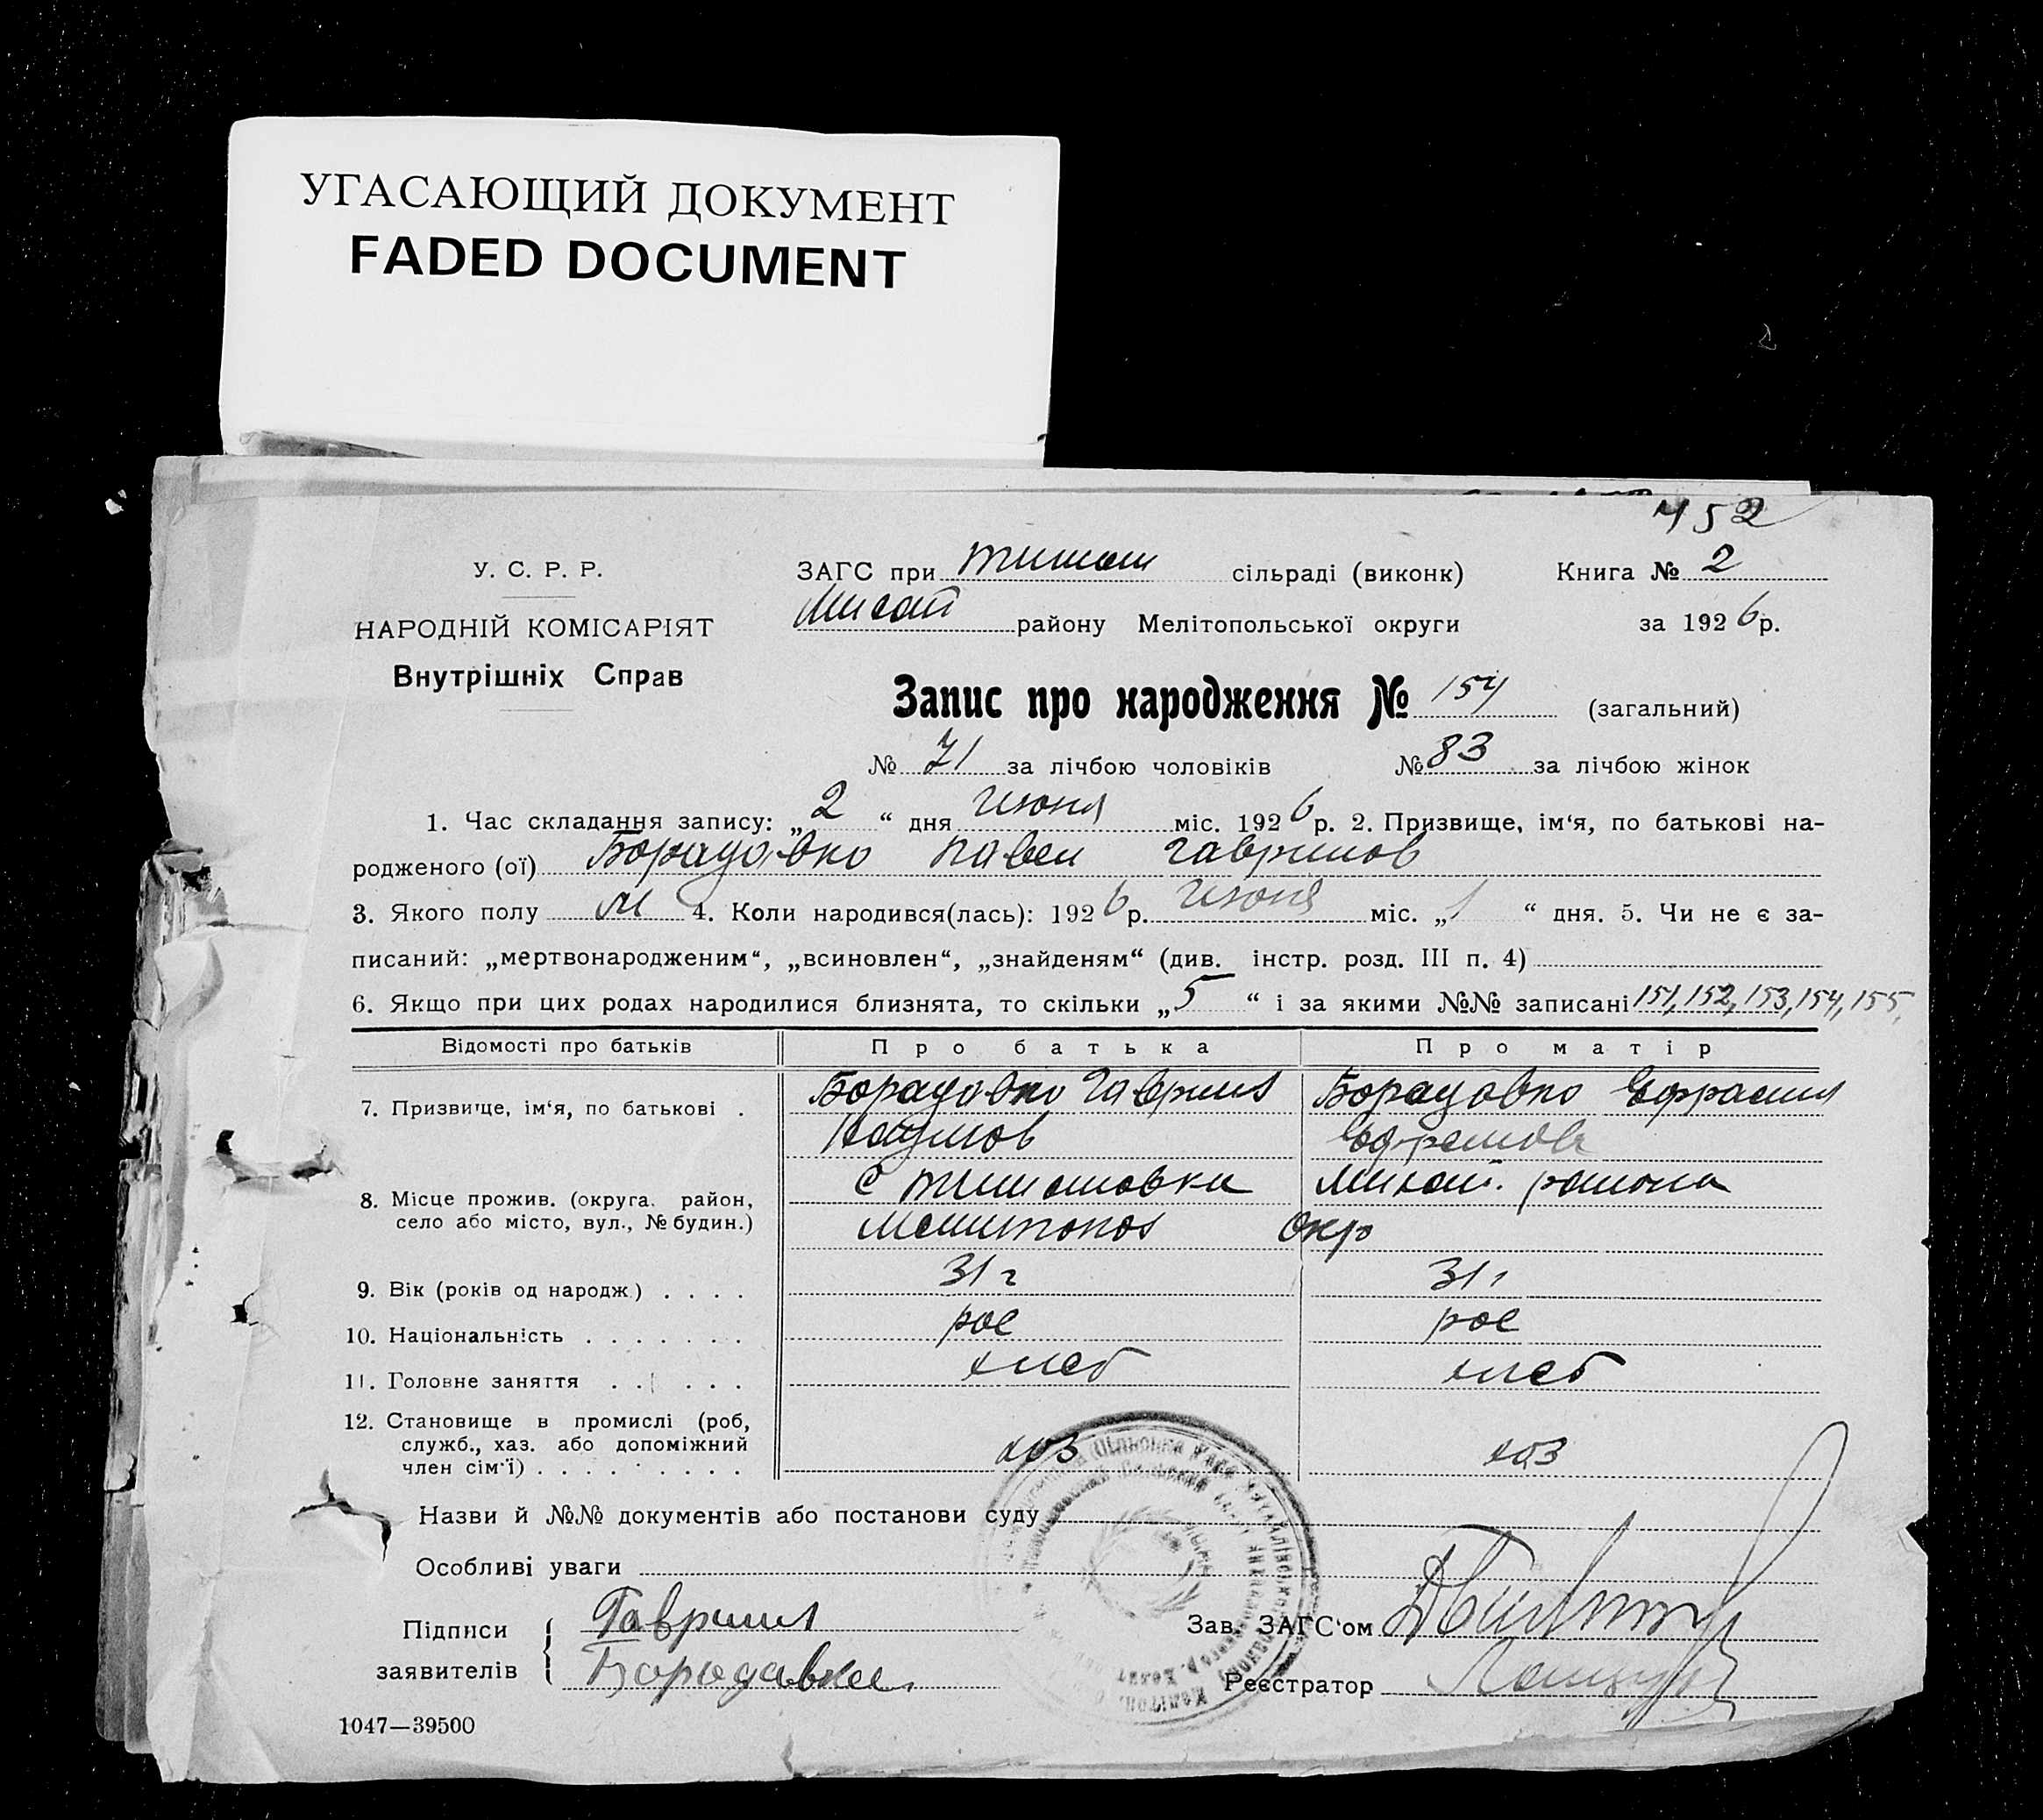 УГАСАЮЩИЙ ДОКУМЕНТ
FADED DOCUMENT
452
У. С. Р. Р.
НАРОДНІЙ КОМІСАРІЯТ
Внутрішніх Справ
ЗАГС при тимош сільраді (виконк) Книга № 2
Михай району Мелітопольської округи за 1926 р.
Запис про народження № 154 (загальний)
№ 71 за лічбою чоловіків № 83 за лічбою жінок
1. Час складання запису: „2“ дня июня міс. 1926 р. 2. Призвище, ім‘я, по батькові на-
родженого (ої) Борадавко Павел Гаврилов
3. Якого полу М 4. Коли народився(лась): 1926 р. июня міс. „1“ дня. 5. Чи не є за-
писаний: „мертвонародженим“, „всиновлен“, „знайденям“ (див. інстр. розд. III п. 4)
6. Якщо при цих родах народилися близнята, то скільки „5“ і за якими №№ записані 151, 152, 153, 154, 155,
Відомості про батьків Про батька Про матір
7. Призвище, ім‘я, по батькові . Борадавко Гаврил Борадавко Ефрасин
Наумов Ефремова
8. Місце прожив. (округа. район, село або місто, вул., № будин.) с тимошовка Михай. района
Мелитопол Окр
9. Вік (років од народж.) . . . . 31 г 31 г
10. Національність . . . . . . . рос рос
11. Головне заняття . . . . . хлеб хлеб
12. Становище в промислі (роб,
служб., хаз. або допоміжний
член сім‘ї) . . . . . . . . . хоз хоз
Назви й №№ документів або постанови суду
Особливі уваги
Підписи заявителів Гаврил Зав. ЗАГС‘ом
Бородавка Реєстратор
1047—39500